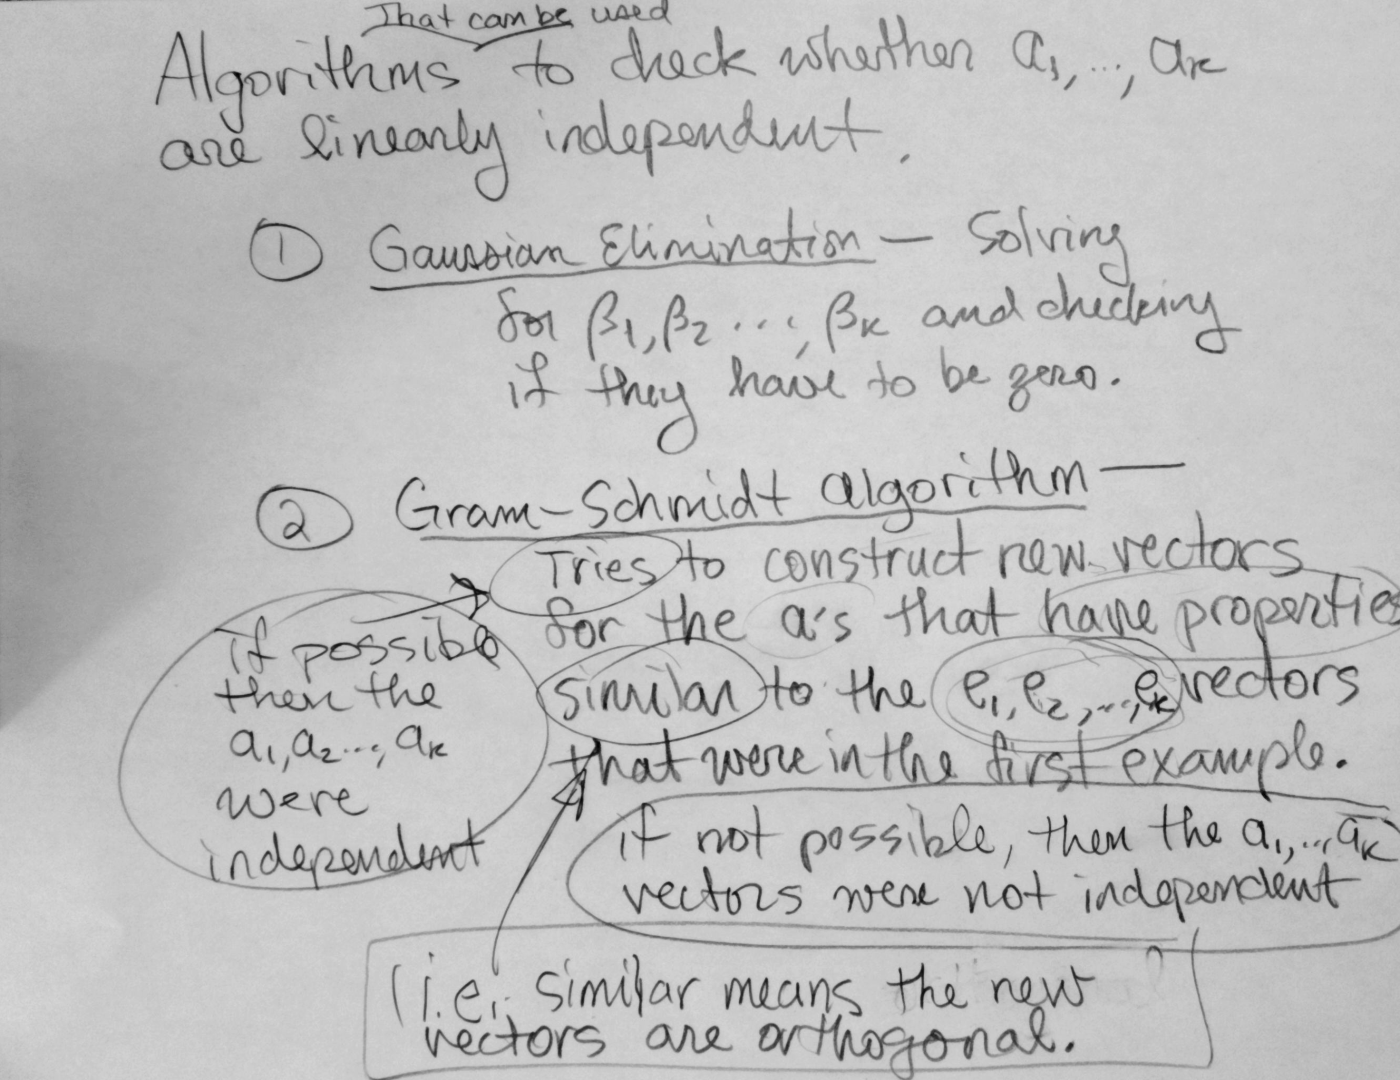 That can be used
Algorithms to check whether a₁, ..., aₖ
are linearly independent.
① Gaussian Elimination — Solving
for β₁, β₂ ..., βₖ and checking
if they have to be zero.
② Gram-Schmidt algorithm —
Tries to construct new vectors
for the a's that have properties
similar to the e₁, e₂, ..., eₖ vectors
that were in the first example.
if possible
then the
a₁, a₂ ..., aₖ
were
independent
if not possible, then the a₁, ..., aₖ
vectors were not independent
(i.e., similar means the new
vectors are orthogonal.